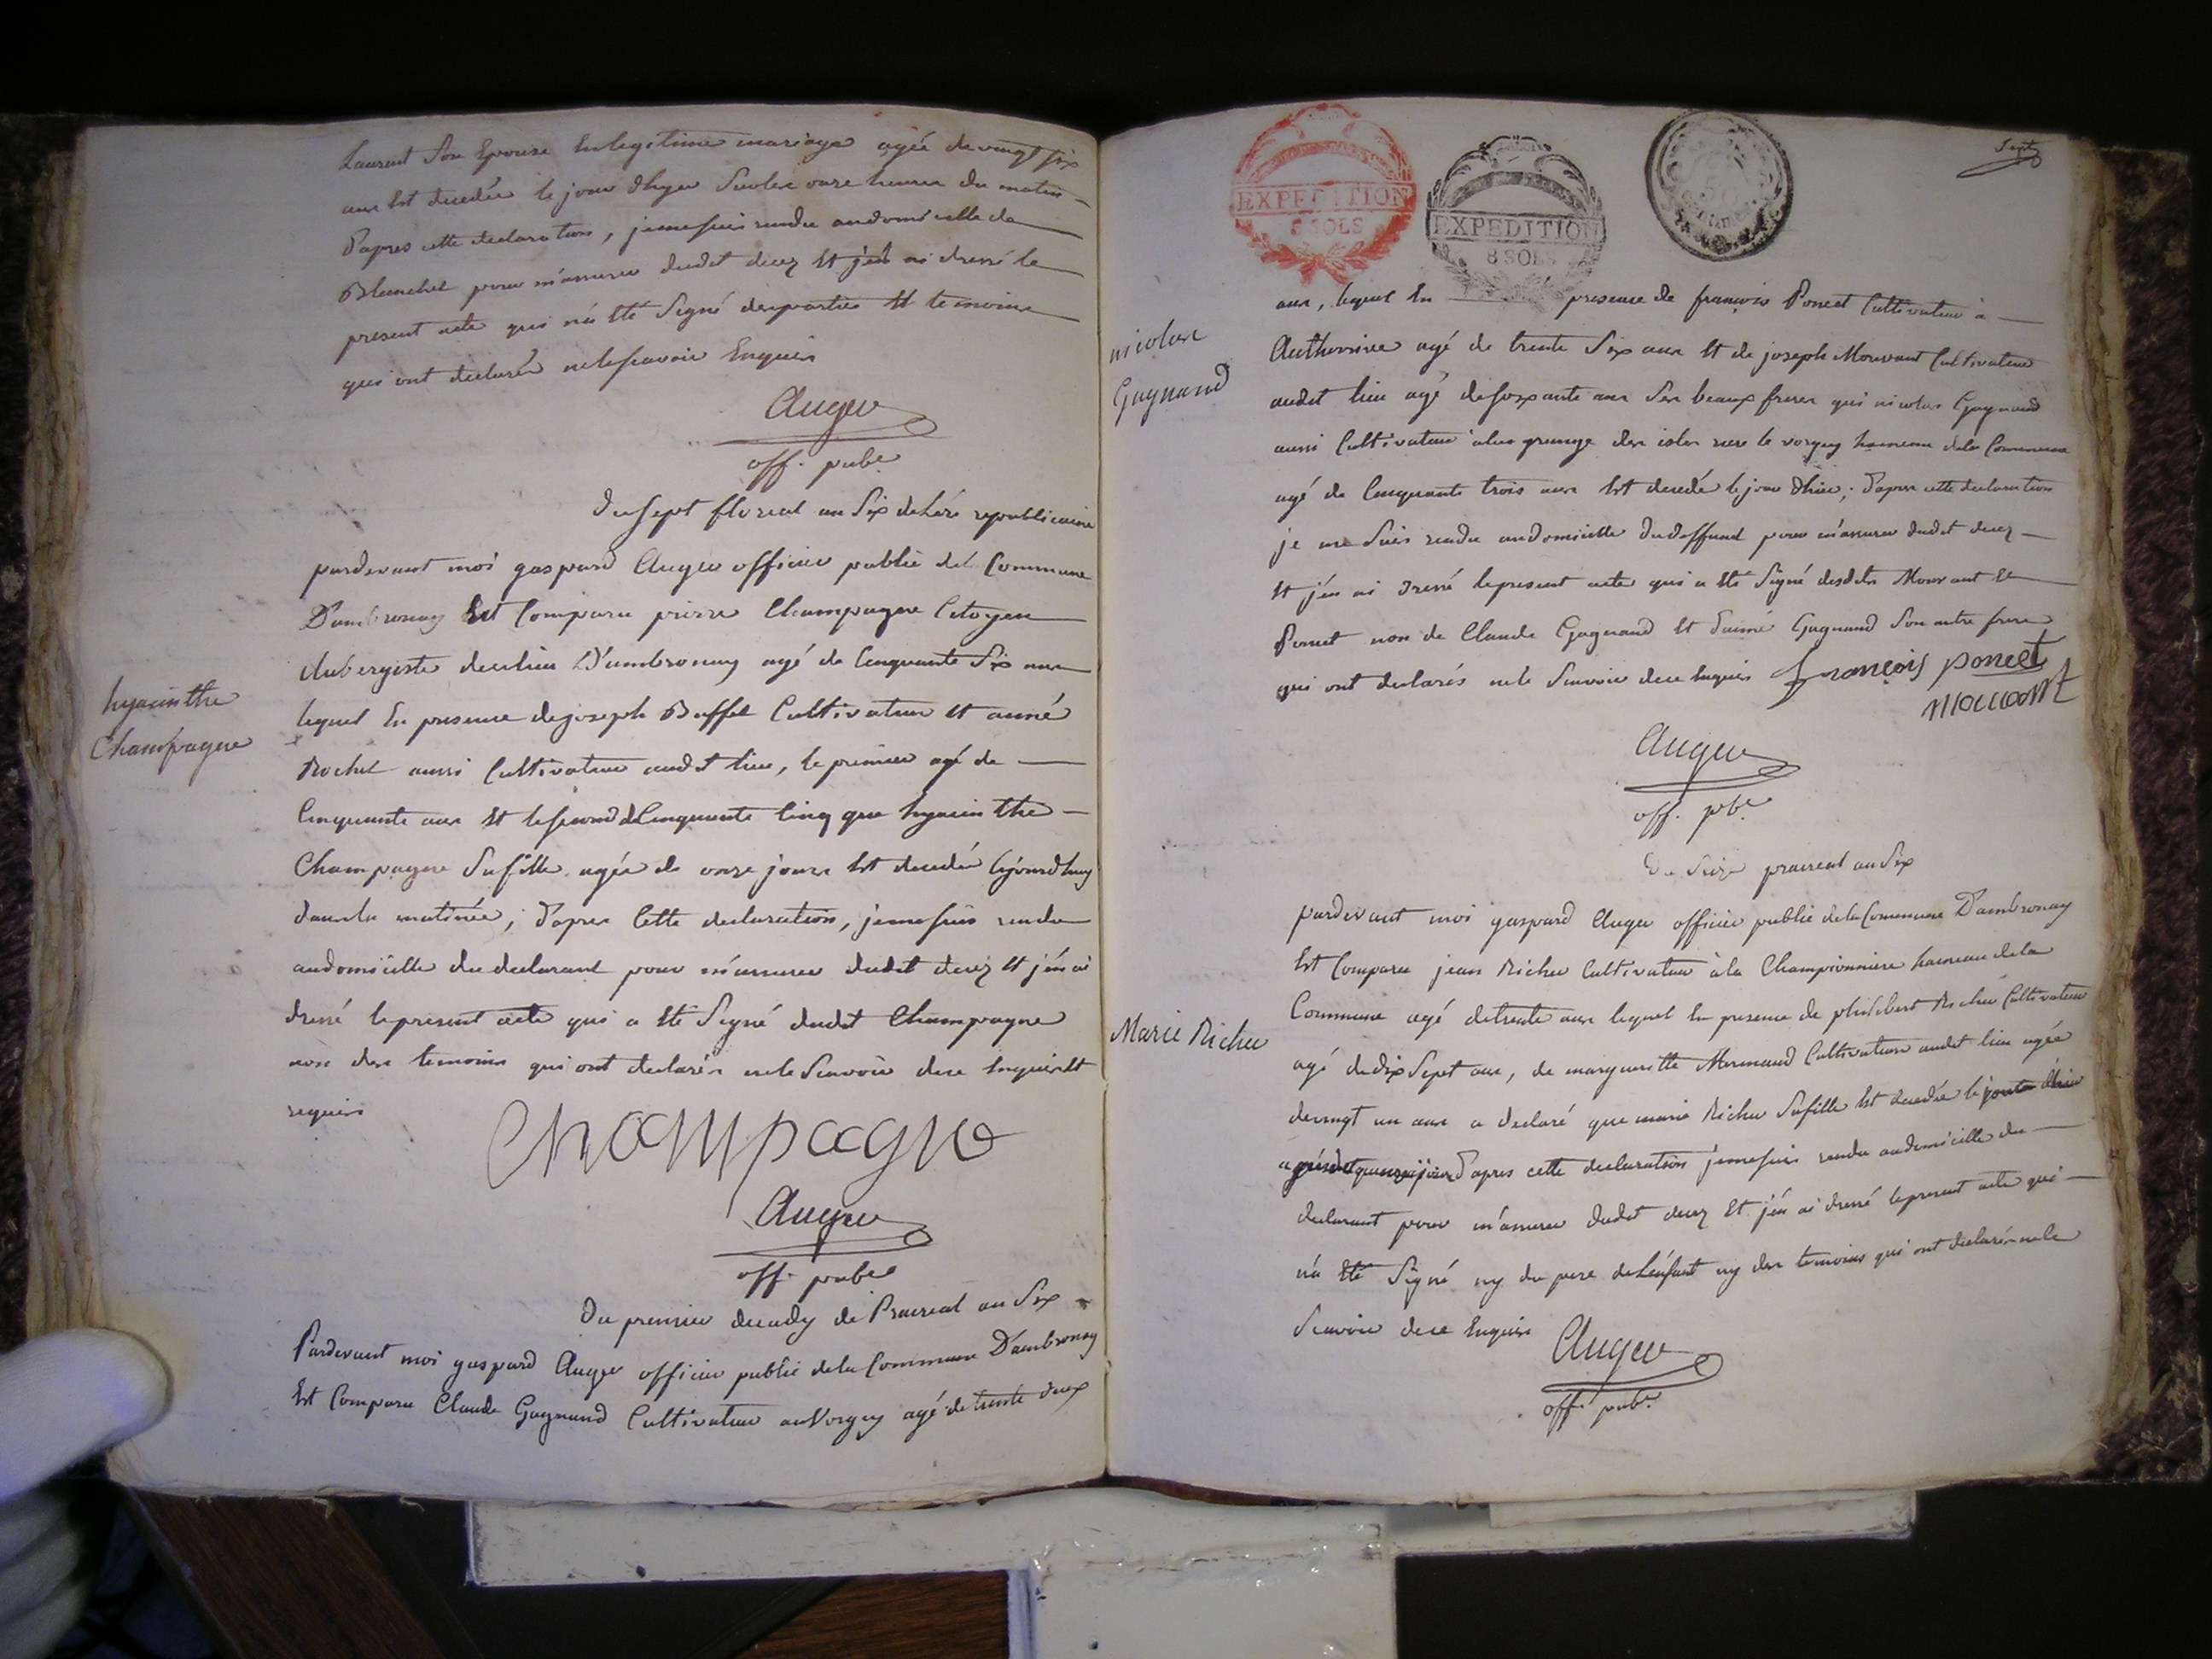 Laurent Son Epouse En legitime mariage agée de vingt six
ans Est decedée le jour dhyer Sur les onze heures du matin
D'apres cette declaration, je me suis rendu au domicille de
Blanchet pour m'assurer dudit decez Et j'en ai dressé le
present acte qui n'a Eté Signé des parties Et temoins
qui ont declarés ne le scavoir Enquis
Auger
off. pube
Du sept floreal an Six de L'ére republicaine
pardevant moi gaspard Auger officier public de la Commune
D'ambronay Est Comparu pierre Champagne Citoyen
Aubergiste de ce lieu D'ambronay agé de Cinquante Six ans
lequel En presence de joseph Buffet Cultivateur Et aimé
Rochet aussi Cultivateur audit lieu, le premier agé de
Cinquante ans Et le second de Cinquante Cinq que hyacinthe
Champagne Sa fille agée de onze jours Est decedée ce jourdhuy
dans la matinée; D'apres Cette declaration, je me suis rendu
au domicille du declarant pour m'assurer dudit decez Et j'en ai
dressé le present acte qui a Eté Signé dudit Champagne
non des temoins qui ont declarés ne le Scavoir de ce Enquis Et
requis
hyacinthe
Champagne
Champagne
Auger
off. pube
Du premier decady de Prairial an Six
Pardevant moi gaspard Auger officier public de la Commune D'ambronay
Est Comparu Claude Gagnand Cultivateur au Vorgey agé de trente deux
Sept
EXPEDITION
8 SOLS
EXPEDITION
8 SOLS
nicolas
Gagnand
ans, lequel En presence de françois Poncet Cultivateur à
Autherrive agé de trente Six ans Et de joseph Mouvant Cultivateur
audit lieu agé de soixante ans Ses beaux freres que nicolas Gagnand
aussi Cultivateur a la grange des isles vers le vorgey hameau de la Commune
agé de Cinquante trois ans Est decedé le jour d'hier; D'apres cette declaration
je me Suis rendu au domicille du deffunt pour m'assurer dudit decez
Et j'en ai dressé le present acte qui a Eté Signé desdits Mouvant Et
Poncet non de Claude Gagnand Et D'aimé Gagnand Son autre frere
qui ont declarés ne le Scavoir de ce Enquis françois poncet
mouvant
Auger
off. pbc
Du Seize prairial an Six
pardevant moi gaspard Auger officier public de la Commune D'ambronay
Est Comparu jean Richer Cultivateur à la Championniere hameau de la
Commune agé de trente ans lequel En presence de philibert Richer Cultivateur
agé de dix Sept ans, de margueritte Mermand Cultivateur audit lieu agée
de vingt un ans a declaré que marie Richer Sa fille Est decedée le jour d'hier
agée de quinze jours D'apres cette declaration je me suis rendu au domicille du
declarant pour m'assurer dudit decez Et j'en ai dressé le present acte qui
n'a Eté Signé ny du pere de L'enfant ny des temoins qui ont declarés ne le
Scavoir de ce Enquis
Marie Richer
Auger
off. pube